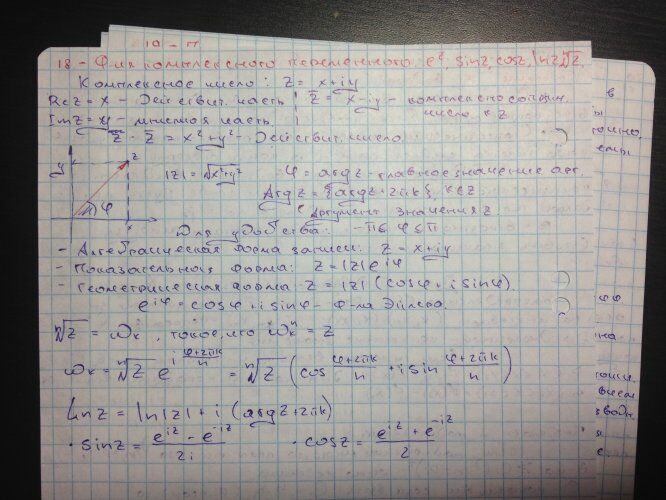 19 - П
18 - Ф-ия комплексного переменного e^z, sinz, cosz, lnz, ⁿ√z
Комплексное число: z = x+iy
Re z = x - Действит. часть | z̄ = x-iy - комплексно сопряж.
Im z = y - мнимая часть число к z
z · z̄ = x²+y² - Действит. число
y z |z| = √x²+y² φ = arg z - главное значение арг.
Arg z = {arg z + 2πk}, k∈Z
φ Аргумент значения z
x
Для удобства: -π ≤ φ ≤ π
- Алгебраическая форма записи: z = x+iy
- Показательная форма: z = |z| e^{iφ}
- Геометрическая форма - z = |z| (cosφ + i sinφ).
e^{iφ} = cosφ + i sinφ - Ф-ла Эйлера.
ⁿ√z = ω_k, такое, что ω_k^n = z
ω_k = ⁿ√z e^{i (φ+2πk)/n} = ⁿ√z (cos (φ+2πk)/n + i sin (φ+2πk)/n)
Ln z = ln|z| + i (arg z + 2πk)
· sin z = (e^{iz} - e^{-iz})/2i · cos z = (e^{iz} + e^{-iz})/2